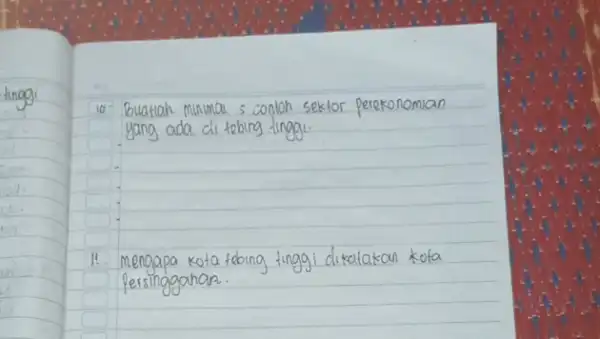 tinggi
10 Buatlah minimal 5 contoh sektor perekonomian
yang ada di tebing tinggi.
11. mengapa kota tebing tinggi dikatakan kota
Persinggahan.